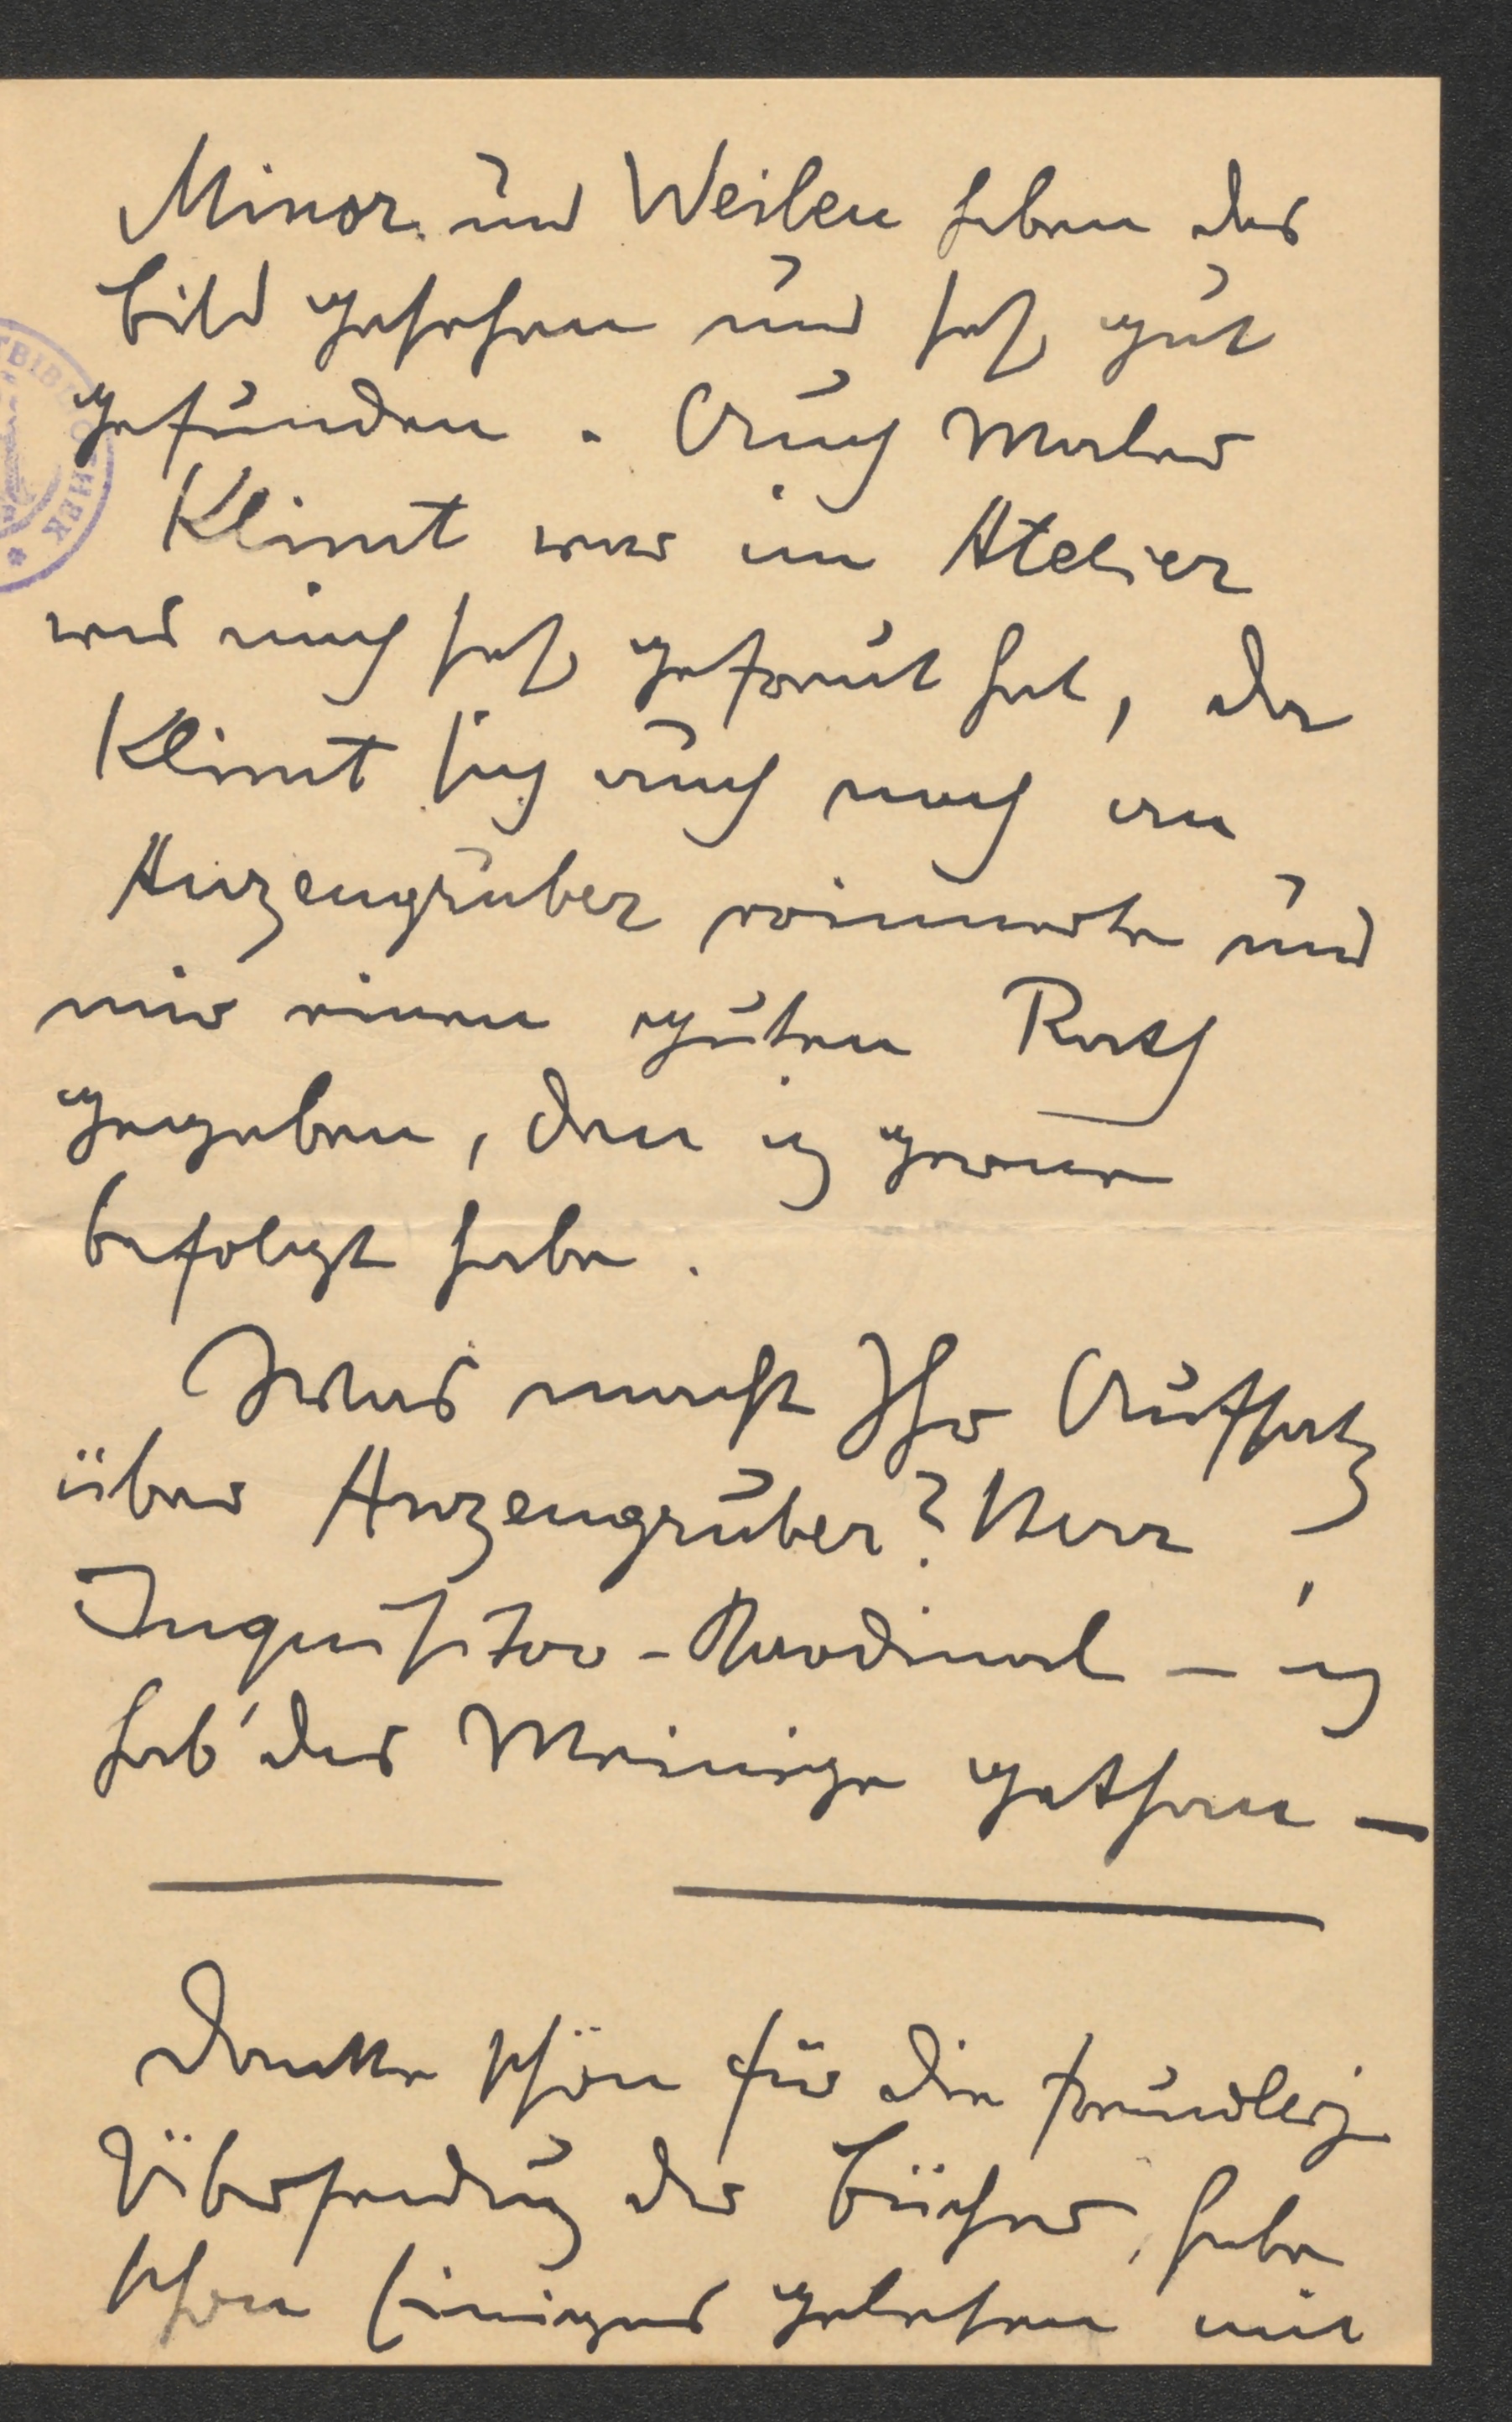 Minor und Weilen haben das
Bild gesehen und sehr gut
gefunden. Auch Maler
Klimt war im Atelier
was mich sehr gefreut hat, da
Klimt sich auch noch an
Anzengruber erinnerte und
mir einen guten Rath
gegeben, den ich gerne
befolgt habe.
Was macht Ihr Aufsatz
über Anzengruber? Herr
Inquisitor-Kardinal – ich
hab' das Meinige gethan –
Danke schön für die freundlich
Übersendung der Bücher, habe
schon Einiges gelesen mit